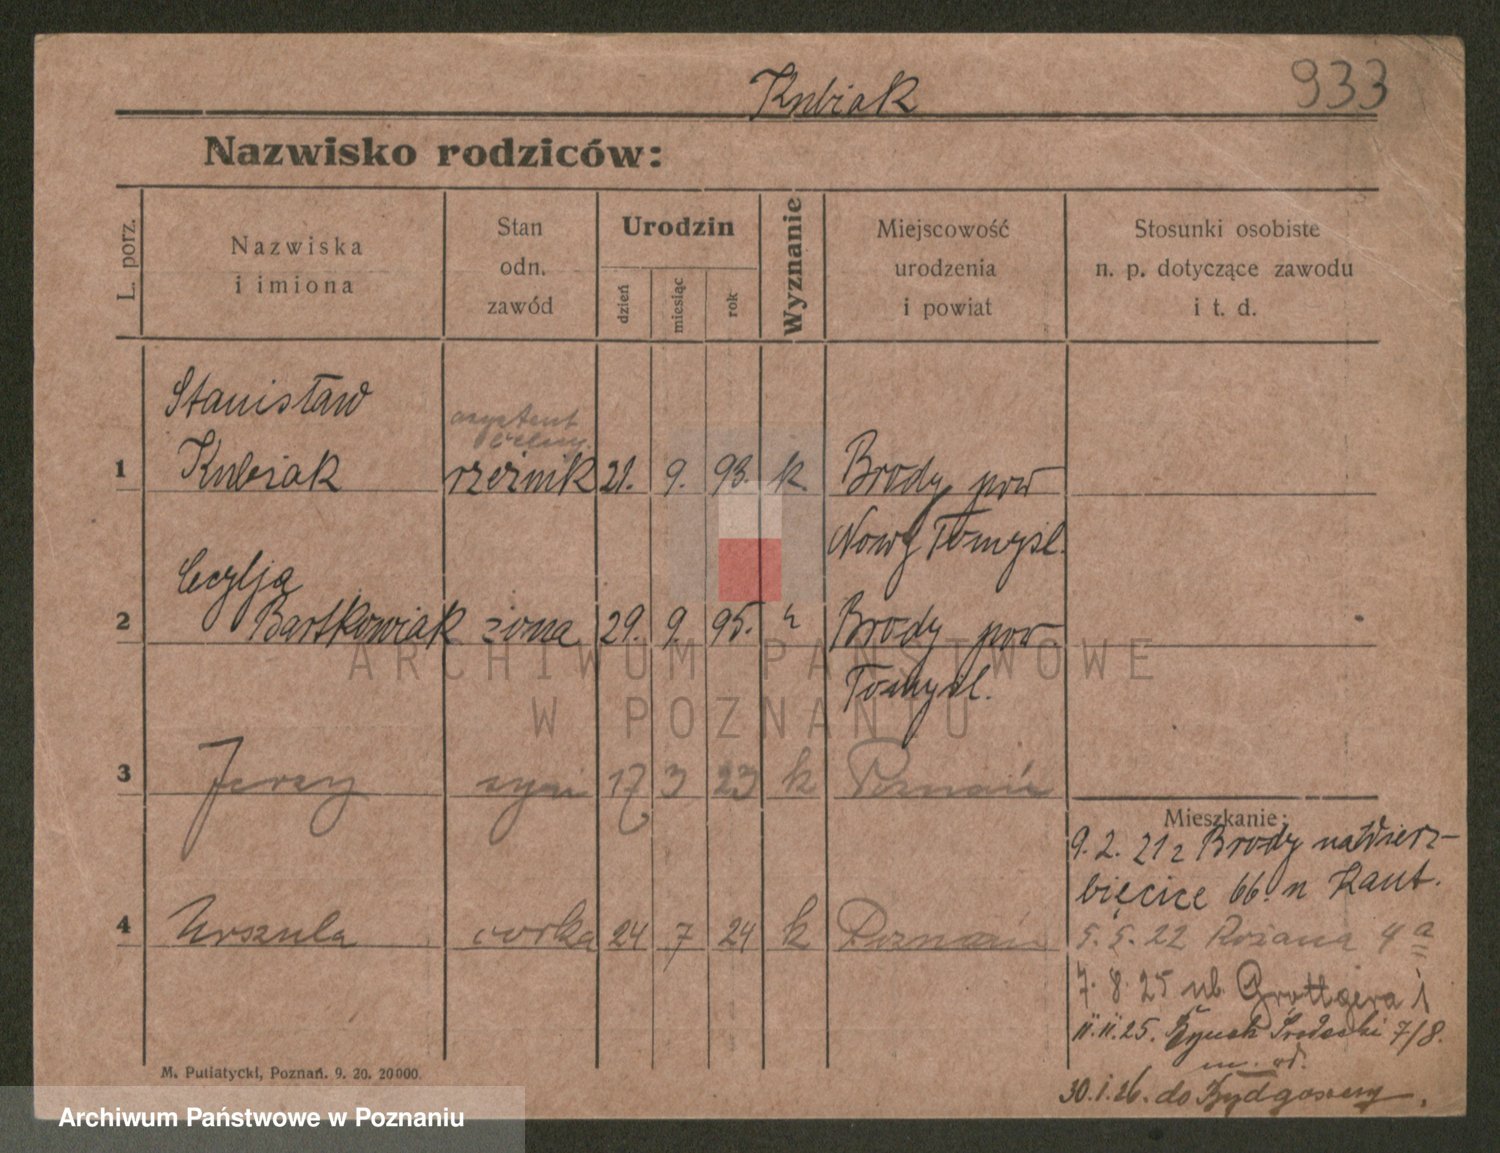 Kubiak 933
Nazwisko rodziców:
L. porz.
Nazwiska
i imiona
Stan
odn.
zawód
Urodzin
dzień
miesiąc
rok
Wyznanie
Miejscowość
urodzenia
i powiat
Stosunki osobiste
n. p. dotyczące zawodu
i t. d.
Stanisław
asystent
1 Kubiak rzeźnik 21. 9. 93. k. Brody pow
Nowy Tomyśl.
Cecylja
2 Bartkowiak żona 29. 9. 95. Brody pow
Tomyśl.
3 Jerzy syn 17 3 23 k Poznań
Mieszkanie:
9. 2. 21 z Brody na Wierz-
bięcice 66. n Kant.
4 Urszula córka 24 7 24 k Poznań
5. 5. 22 Różana 4 a
7. 8. 25 ul. Grottgera 1
11. 11. 25. Rynek Środecki 7/8.
30. 1. 26. do Bydgoszczy.
M. Putiatycki, Poznań. 9. 20. 20000.
ARCHIWUM PAŃSTWOWE
W POZNANIU
Archiwum Państwowe w Poznaniu